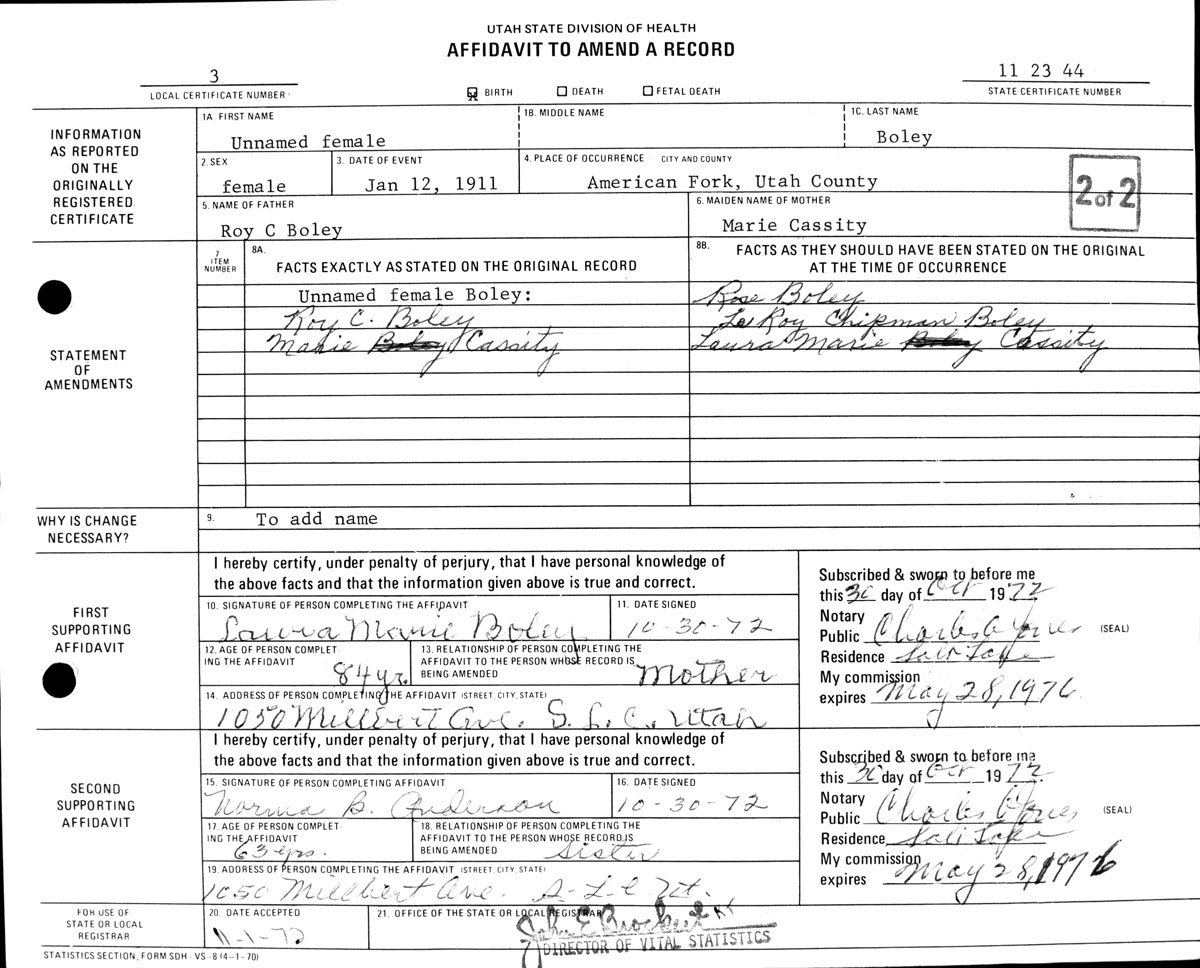 UTAH STATE DIVISION OF HEALTH
AFFIDAVIT TO AMEND A RECORD
3
LOCAL CERTIFICATE NUMBER
BIRTH DEATH FETAL DEATH
11 23 44
STATE CERTIFICATE NUMBER
INFORMATION AS REPORTED ON THE ORIGINALLY REGISTERED CERTIFICATE
1A FIRST NAME
Unnamed female
1B. MIDDLE NAME
1C. LAST NAME
Boley
2. SEX
female
3. DATE OF EVENT
Jan 12, 1911
4. PLACE OF OCCURRENCE CITY AND COUNTY
American Fork, Utah County
2 of 2
5. NAME OF FATHER
Roy C Boley
6. MAIDEN NAME OF MOTHER
Marie Cassity
STATEMENT OF AMENDMENTS
7. ITEM NUMBER
8A.
FACTS EXACTLY AS STATED ON THE ORIGINAL RECORD
8B. FACTS AS THEY SHOULD HAVE BEEN STATED ON THE ORIGINAL
AT THE TIME OF OCCURRENCE
Unnamed female Boley:
Rose Boley
Roy C. Boley
Le Roy Chipman Boley
Marie Boley Cassity
Laura Marie Boley Cassity
WHY IS CHANGE NECESSARY?
9. To add name
FIRST SUPPORTING AFFIDAVIT
I hereby certify, under penalty of perjury, that I have personal knowledge of
the above facts and that the information given above is true and correct.
10. SIGNATURE OF PERSON COMPLETING THE AFFIDAVIT
Laura Marie Boley
11. DATE SIGNED
10-30-72
12. AGE OF PERSON COMPLET-
ING THE AFFIDAVIT
84 yr.
13. RELATIONSHIP OF PERSON COMPLETING THE
AFFIDAVIT TO THE PERSON WHOSE RECORD IS
BEING AMENDED
Mother
14. ADDRESS OF PERSON COMPLETING THE AFFIDAVIT (STREET, CITY, STATE)
1050 Millbert Ave. S. L. C. Utah
Subscribed & sworn to before me
this 30 day of Oct 1972
Notary
Public Charles
(SEAL)
Residence Salt Lake
My commission
expires May 28, 1976
SECOND SUPPORTING AFFIDAVIT
I hereby certify, under penalty of perjury, that I have personal knowledge of
the above facts and that the information given above is true and correct.
15. SIGNATURE OF PERSON COMPLETING AFFIDAVIT
Norma B. Anderson
16. DATE SIGNED
10-30-72
17. AGE OF PERSON COMPLET-
ING THE AFFIDAVIT
63 yrs.
18. RELATIONSHIP OF PERSON COMPLETING THE
AFFIDAVIT TO THE PERSON WHOSE RECORD IS
BEING AMENDED
Sister
19. ADDRESS OF PERSON COMPLETING THE AFFIDAVIT (STREET, CITY, STATE)
1050 Millbert Ave. S-L C Ut.
Subscribed & sworn to before me
this 30 day of Oct 1972
Notary
Public Charles
(SEAL)
Residence Salt Lake
My commission
expires May 28, 1976
FOR USE OF STATE OR LOCAL REGISTRAR
20. DATE ACCEPTED
11-1-72
21. OFFICE OF THE STATE OR LOCAL REGISTRAR
John E Brockert
DIRECTOR OF VITAL STATISTICS
STATISTICS SECTION, FORM SDH-VS-8 (4-1-70)